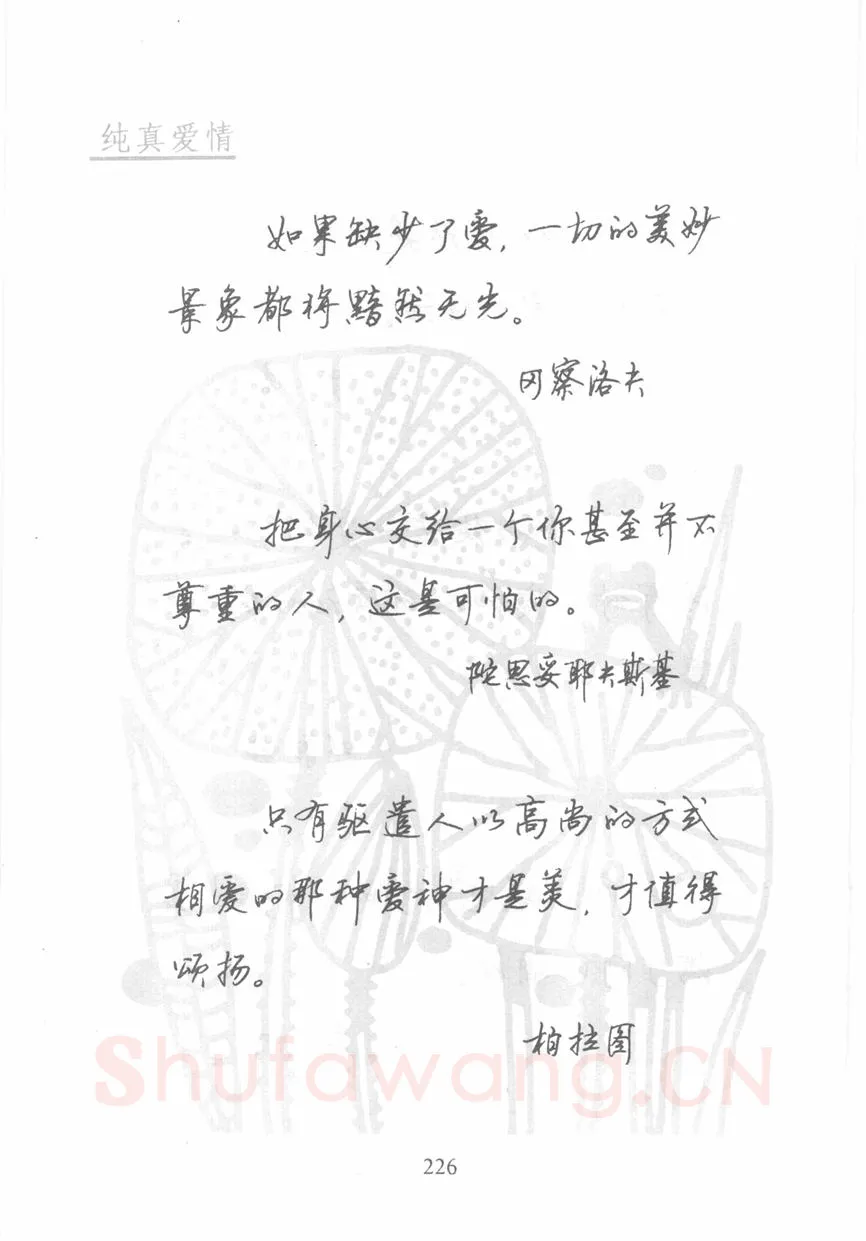 纯真爱情
如果缺少了爱,一切的美妙
景象都将黯然无光。
冈察洛夫
把身心交给一个你甚至并不
尊重的人,这是可怕的。
陀思妥耶夫斯基
只有驱遣人以高尚的方式
相爱的那种爱神才是美,才值得
颂扬。
柏拉图
Shufawang.CN
226